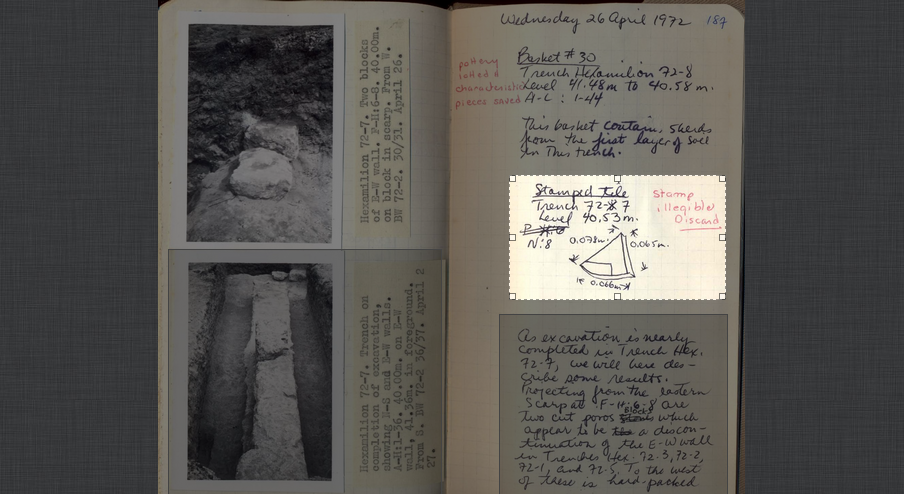 Hexamilion 72-7. Two blocks
of E-W wall. F-H:6-8. 40.00m.
on block in scarp. From W.
BW 72-2. 30/31. April 26.
Hexamilion 72-7. Trench on
completion of excavation,
showing N-S and E-W walls.
A-H:1-36. 40.00m. on E-W
wall, 41.36m. in foreground.
From S. BW 72-2 36/37. April 2
27.
Wednesday 26 April 1972
187
pottery
lotted &
characteristic
pieces saved
Basket # 30
Trench Hexamilion 72-8
Level 41.48m to 40.58m.
A-C : 1-44
This basket contains sherds
from the first layer of soil
in this trench.
Stamped tile
Trench 72-7
Level 40.53m.
N:8
Stamp
illegible
Discard
0.078m.
0.065m.
0.066m
As excavation is nearly
completed in Trench Hex.
72-7, we will here des-
cribe some results.
Projecting from the eastern
Scarp at F-H:6-8 are
two cut poros blocks which
appear to be a discon-
tinuation of the E-W wall
in Trenches Hex. 72-3, 72-2,
72-1, and 72-5. To the west
of these is hard-packed